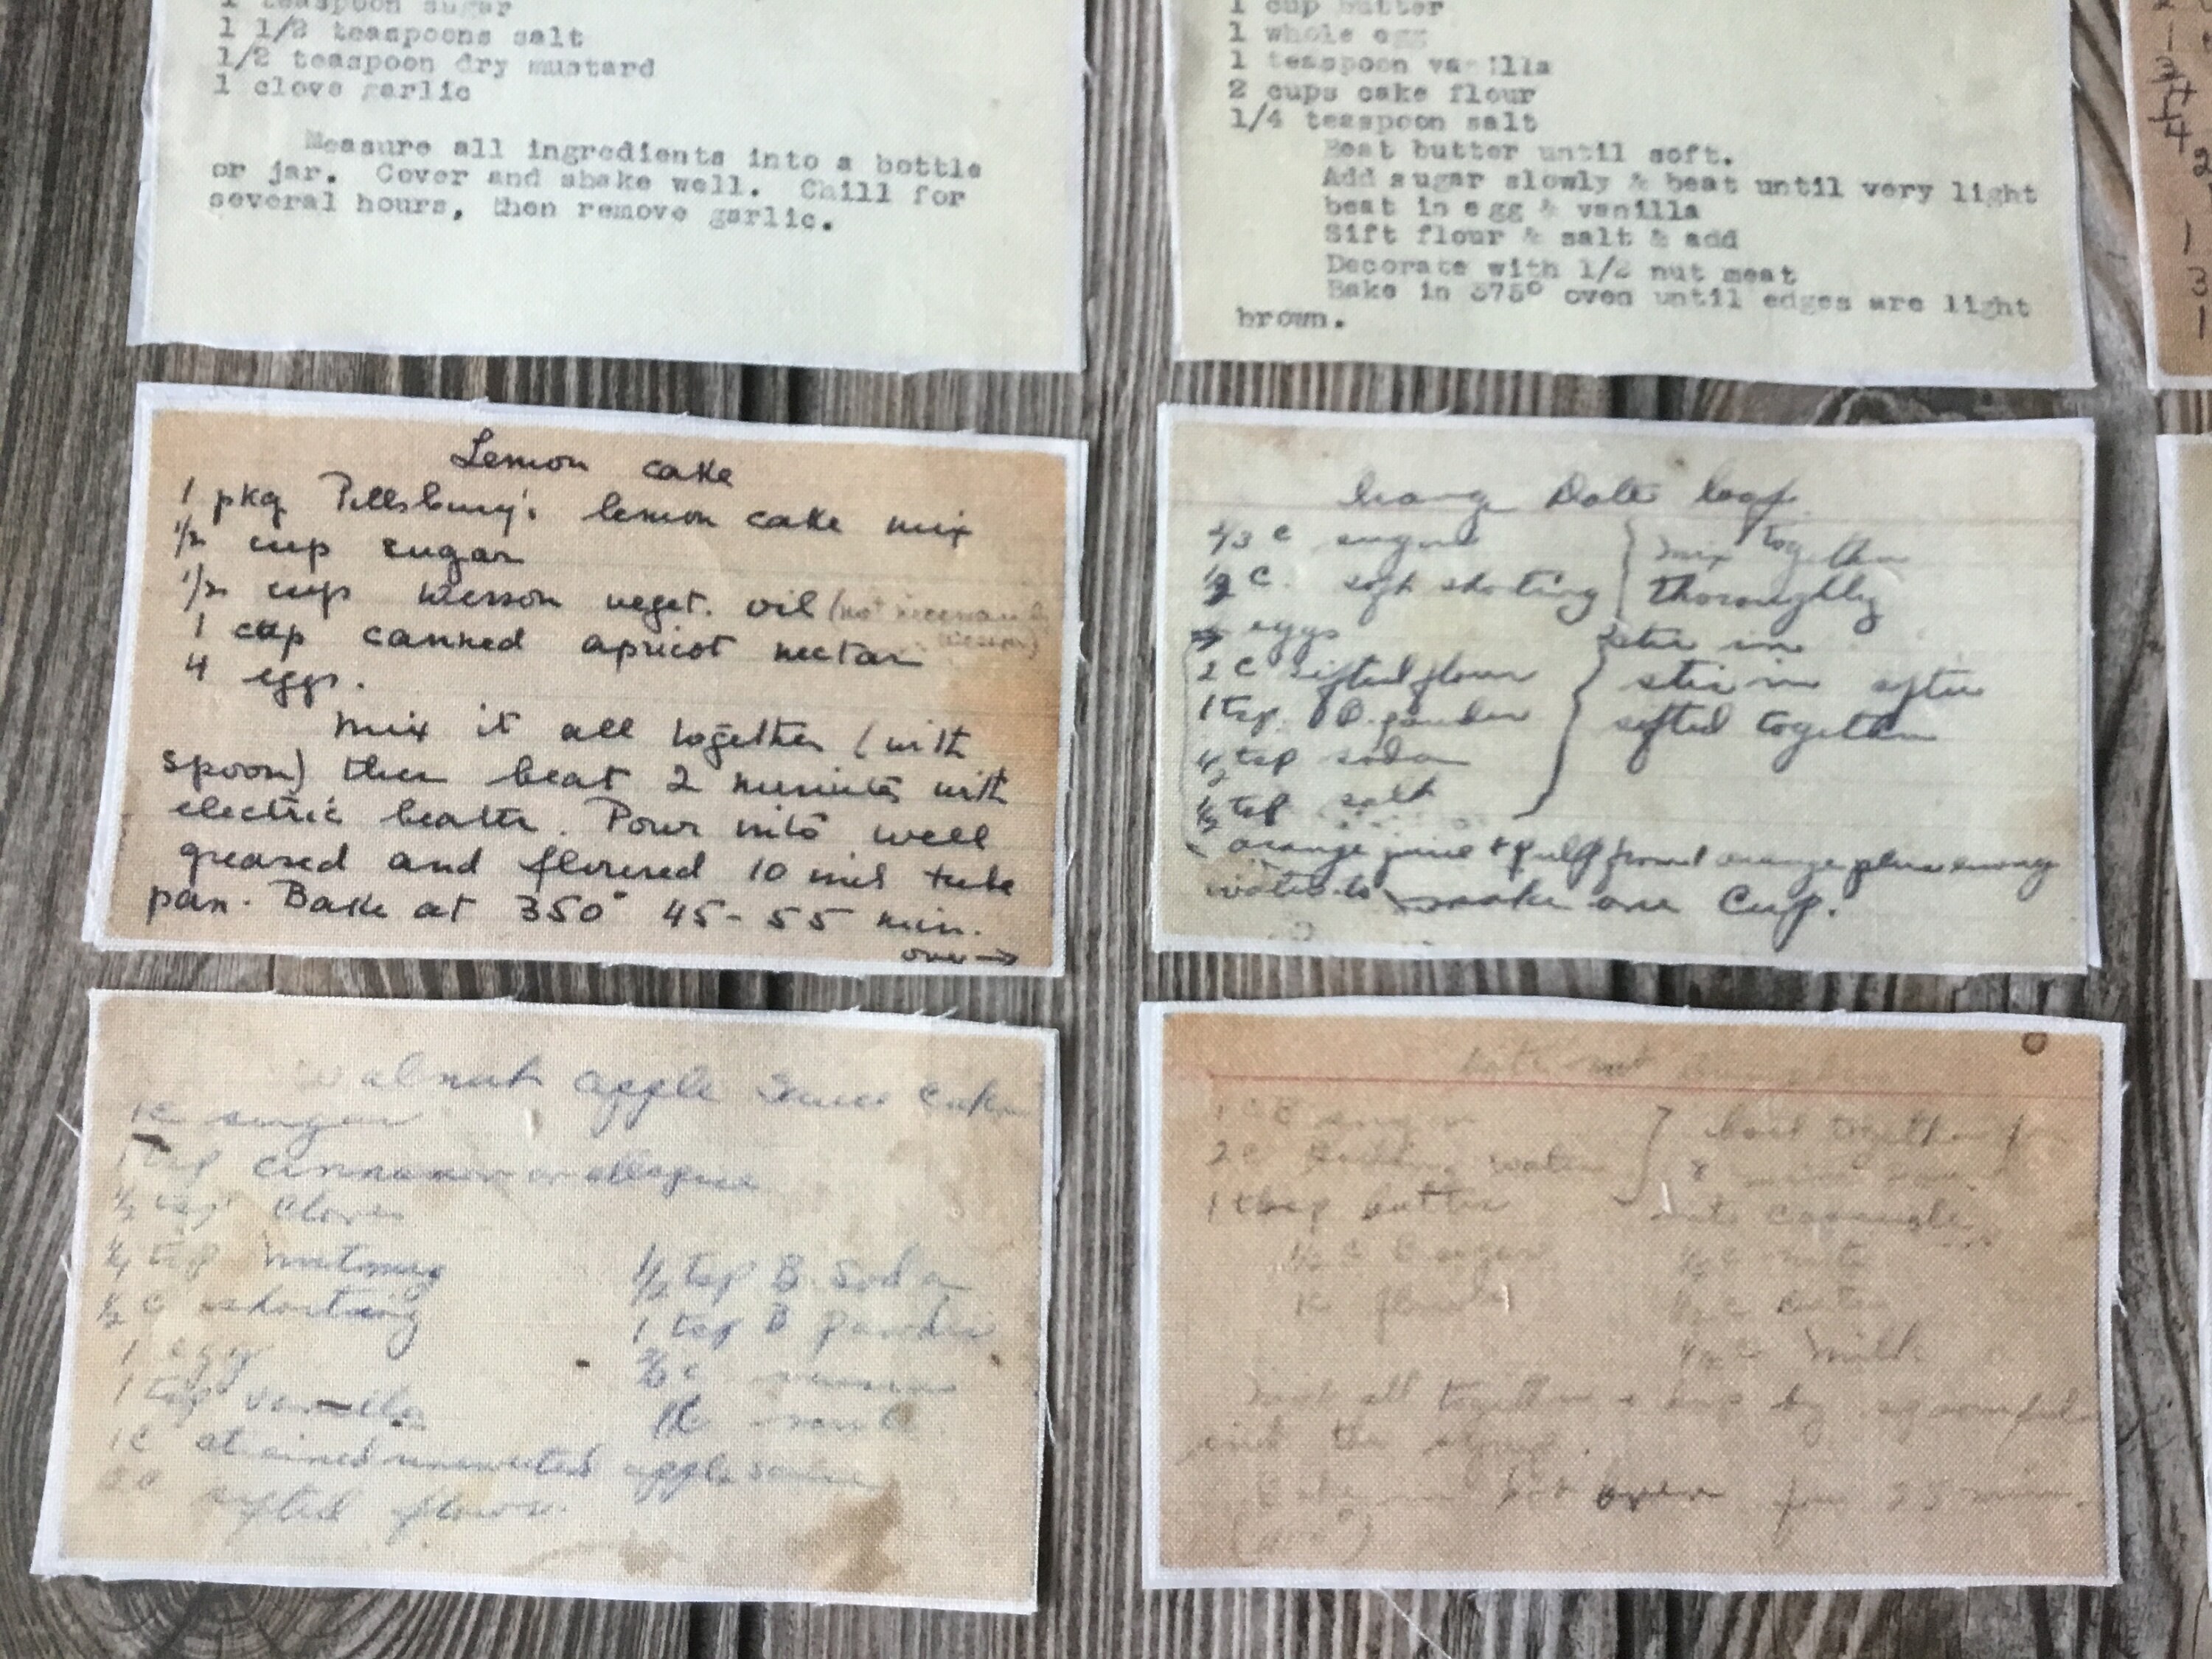 1 teaspoon sugar
1 1/2 teaspoons salt
1/2 teaspoon dry mustard
1 clove garlic
Measure all ingredients into a bottle
or jar. Cover and shake well. Chill for
several hours, then remove garlic.
1 cup butter
1 whole egg
1 teaspoon vanilla
2 cups cake flour
1/4 teaspoon salt
Beat butter until soft.
Add sugar slowly & beat until very light
beat in egg & vanilla
Sift flour & salt & add
Decorate with 1/2 nut meat
Bake in 375° oven until edges are light
brown.
Lemon cake
1 pkg Pillsbury's lemon cake mix
1/2 cup sugar
1/2 cup Wesson veget. oil (not necessarily
Wesson)
1 cup canned apricot nectar
4 eggs.
Mix it all together (with
spoon) then beat 2 minutes with
electric beater. Pour into well
greased and floured 10 inch tube
pan. Bake at 350° 45-55 min.
over →
Date loaf
2/3 c sugar } mix together
1/2 c. soft shorting thoroughly
eggs stir in
2 c sifted flour } stir in after
1 tsp. B. powder sifted together
1/2 tsp soda
1/2 tsp salt
orange juice & pulp from 1 orange plus enough
water to make one cup.
Walnut apple sauce cake
1c sugar
1 tsp cinnamon or allspice
1/2 tsp cloves
1/4 tsp nutmeg
1/2 c shorting
1 egg
1 tsp vanilla
1c strained unsweetened apple sauce
sifted flour.
1/2 tsp B. Soda
1 tsp B powder
1c
Date nut
1 c sugar } boil together for
2c boiling water 8 min
1 tbsp butter into casserole
1/2 c B sugar 1/2 c nuts
1c flour 1/2 c dates
1/2 c milk
Mix all together & drop by spoonfuls
into the syrup.
Bake in hot oven for 25 min.